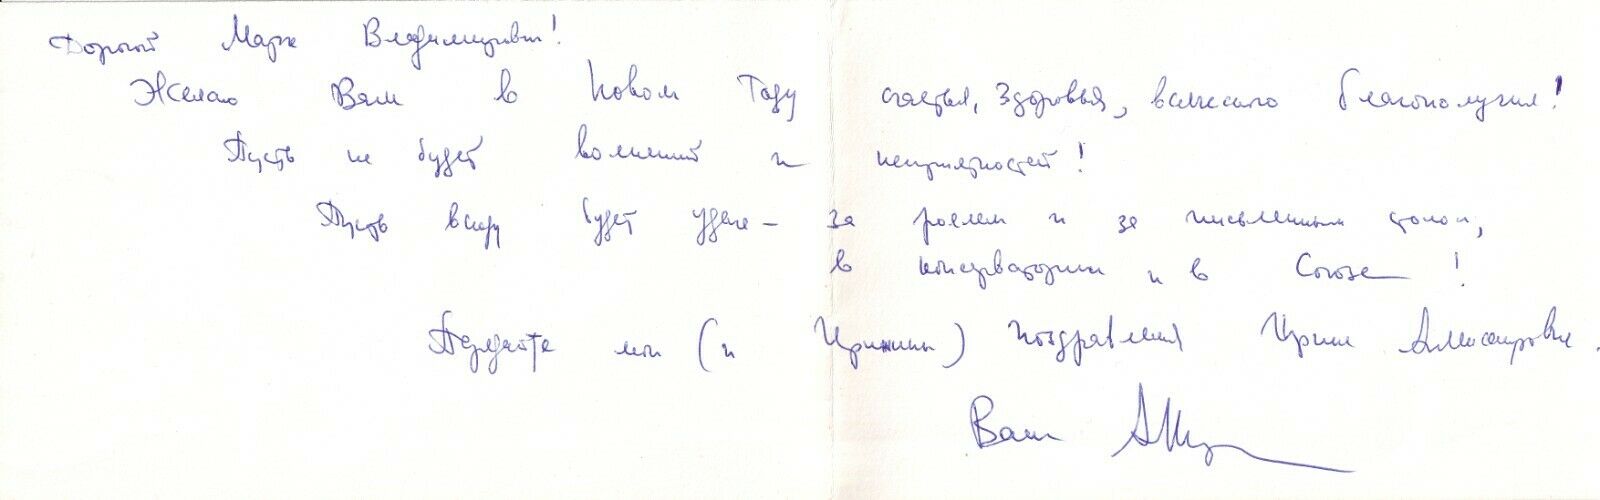 Дорогой Марк Владимирович!
Желаю Вам в Новом Году счастья, здоровья, всяческого благополучия!
Пусть не будет волнений и неприятностей!
Пусть всюду будет удача – за роялем и за письменным столом,
в консерватории и в Союзе!
Передайте мои (и Иринины) поздравления Ирине Александровне.
Ваш